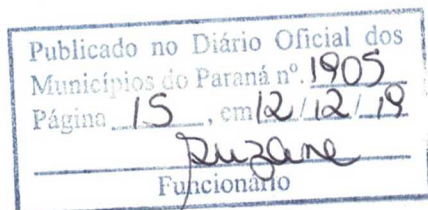 Publicado no Diário Oficial dos
Municípios do Paraná nº. 1905
Página 15, em 12/12/19
Suzane
Funcionário